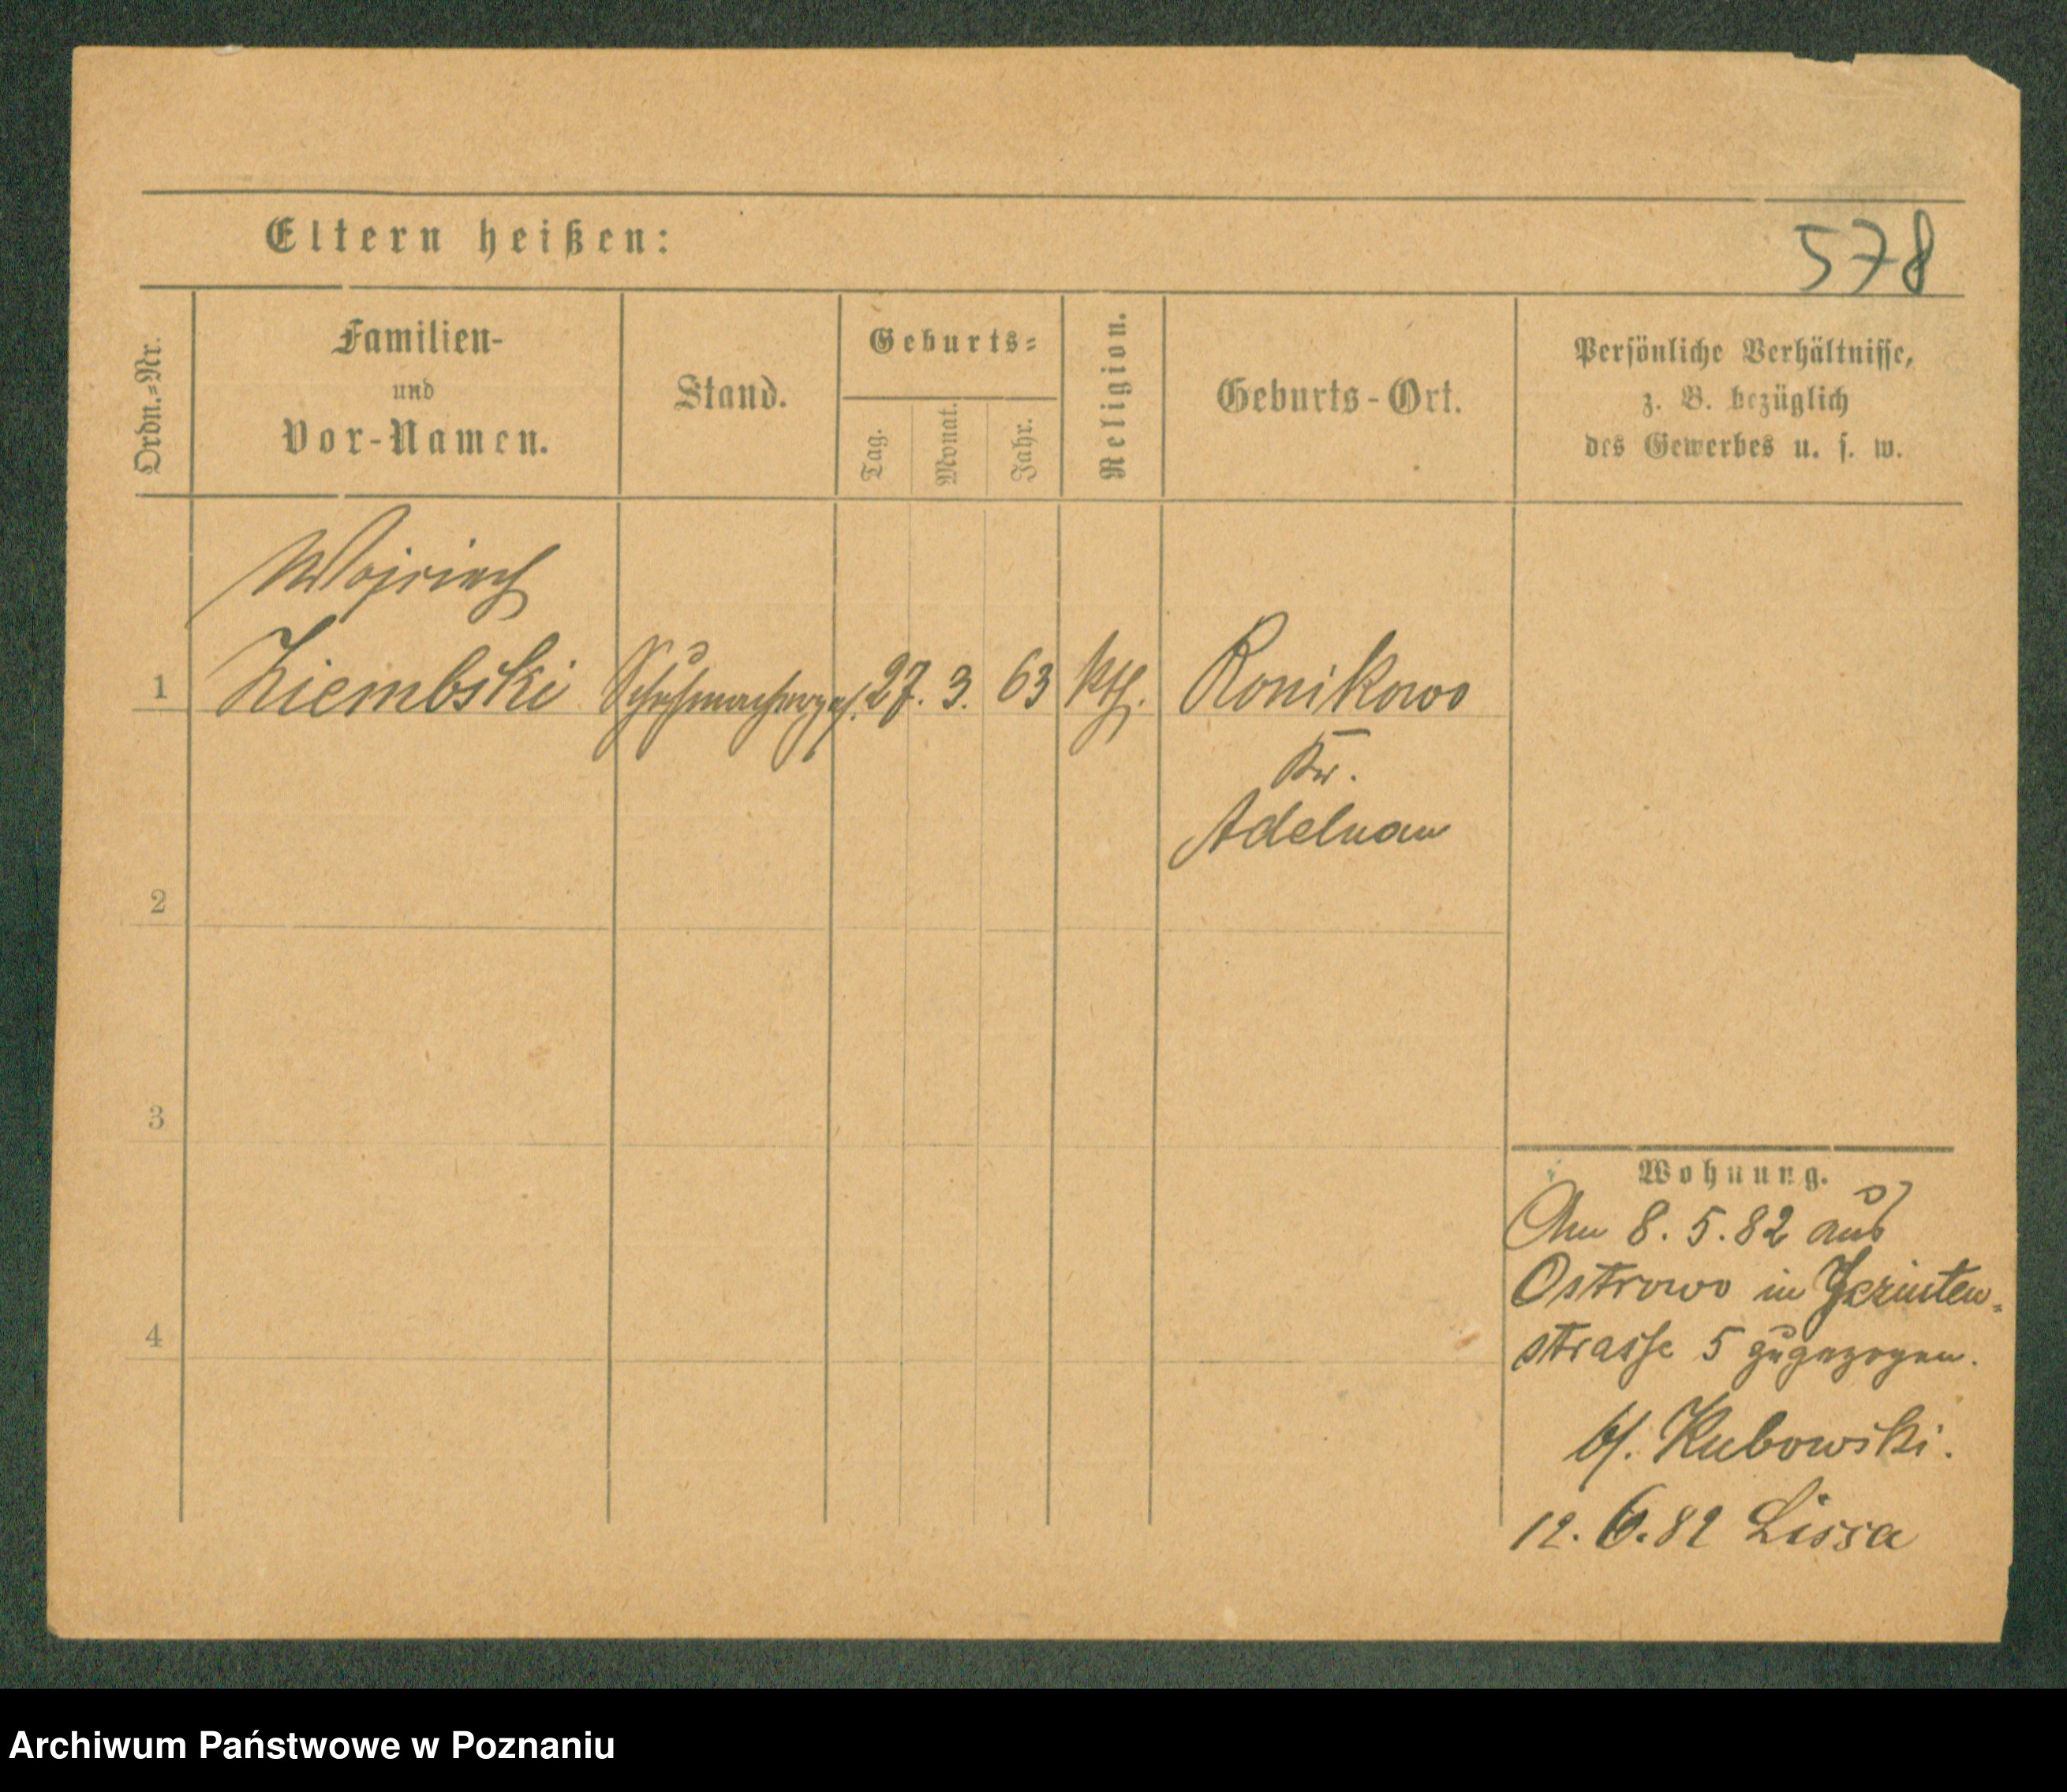 Eltern heißen:
578
Ordn.=Nr.
Familien-
und
Vor-Namen.
Stand.
Geburts=
Tag.
Monat.
Jahr.
Religion.
Geburts-Ort.
Persönliche Verhältnisse,
z. B. bezüglich
des Gewerbes u. s. w.
Wojciech
1 Ziembski Schuhmacherges. 27. 3. 63 kth. Ronikowo
Kr.
Adelnau
2
3
4
Wohnung.
Am 8. 5. 82 aus
Ostrowo in Jezuiten-
strasse 5 zugezogen.
b/. Kubowski.
12. 6. 82 Lissa
Archiwum Państwowe w Poznaniu